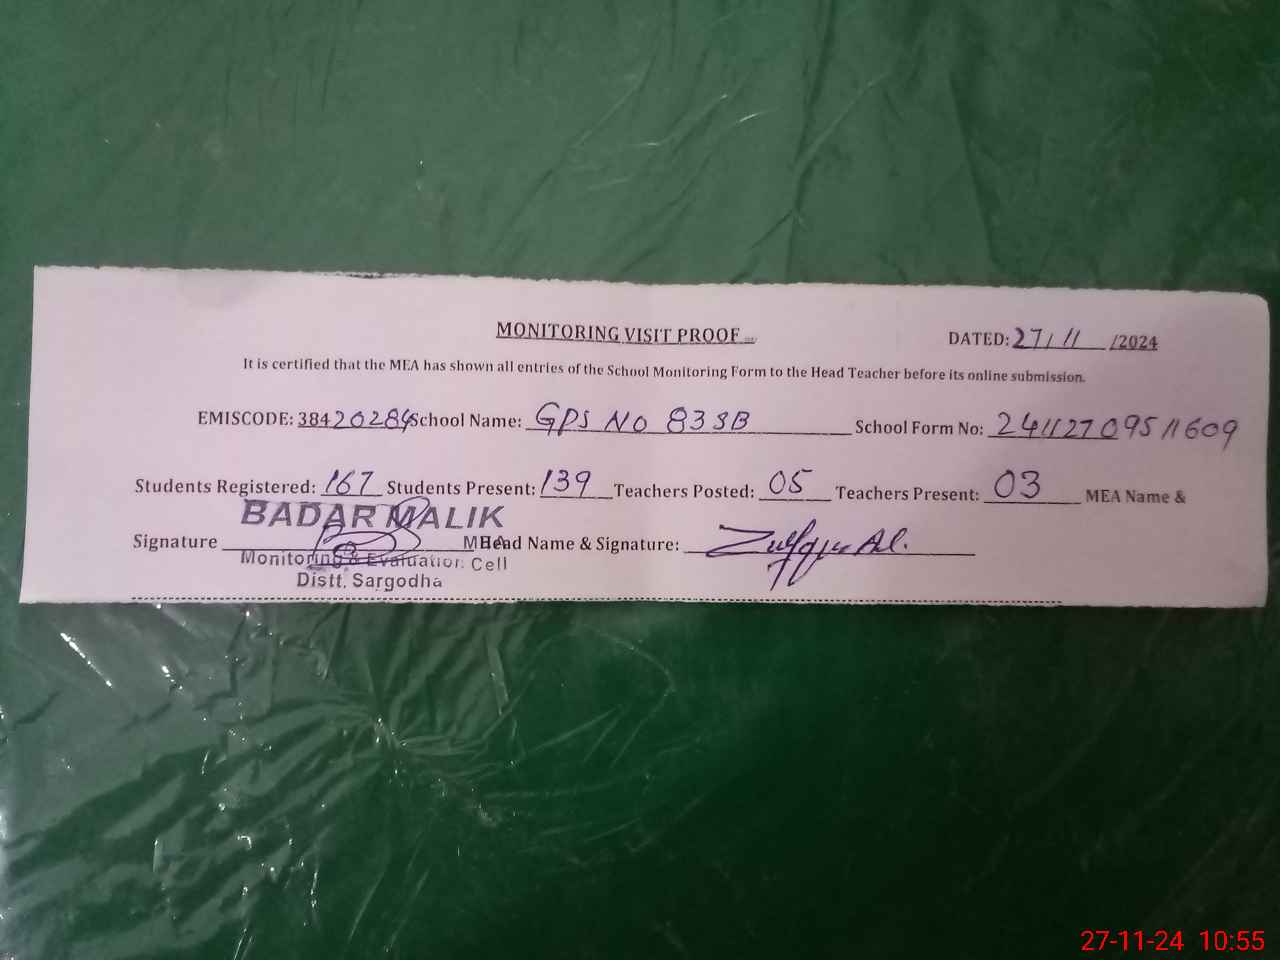 MONITORING VISIT PROOF
DATED: 27/11/2024
It is certified that the MEA has shown all entries of the School Monitoring Form to the Head Teacher before its online submission.
EMISCODE: 38420284 School Name: GPS NO 83 SB School Form No: 24112709511609
Students Registered: 167 Students Present: 139 Teachers Posted: 05 Teachers Present: 03 MEA Name &
BADAR MALIK
Signature MEA Head Name & Signature:
Monitoring & Evaluation Cell
Distt. Sargodha
27-11-24 10:55